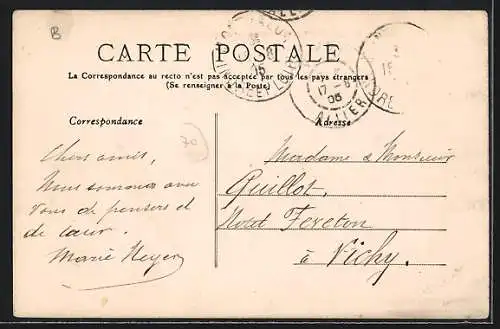 B
CARTE POSTALE
La Correspondance au recto n'est pas acceptée par tous les pays étrangers
(Se renseigner à la Poste)
Correspondance
Adresse
17 -8
ALLIER
70
Chers amis,
Nous sommes avec
vous de pensers et
de cœur.
Marie Meyer
Madame & Monsieur
Quillot,
Hotel
à Vichy.